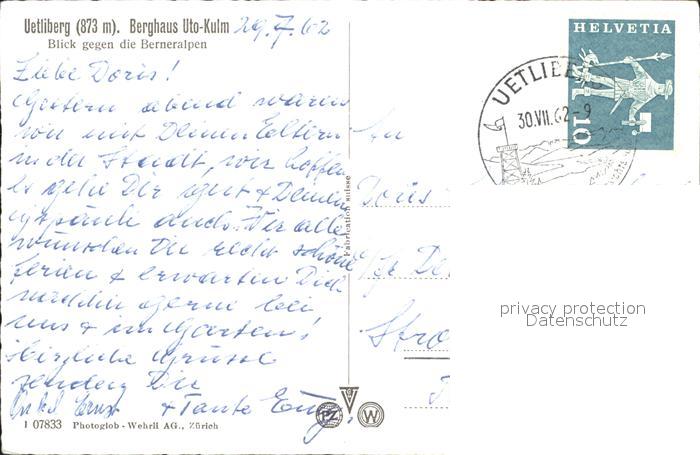 Uetliberg (873 m). Berghaus Uto-Kulm 29.7.62
Blick gegen die Berneralpen
Liebe Doris!
Gestern abend waren
wir mit Deinen Eltern
in der Stadt, wir hoffen
es gehe Dir gut & Deine
auch. Wir alle
wünschen Dir recht schöne
Ferien & erwarten Dich
nachhin gerne bei
uns & im Garten!
Herzliche Grüsse
senden Dir
Onkel Ernst & Tante
1 07833 Photoglob - Wehrli AG., Zürich
Fabrication suisse
PZ W
HELVETIA
10
UETLIBE
30.VII.62-9
An
Doris
Stro
privacy protection
Datenschutz